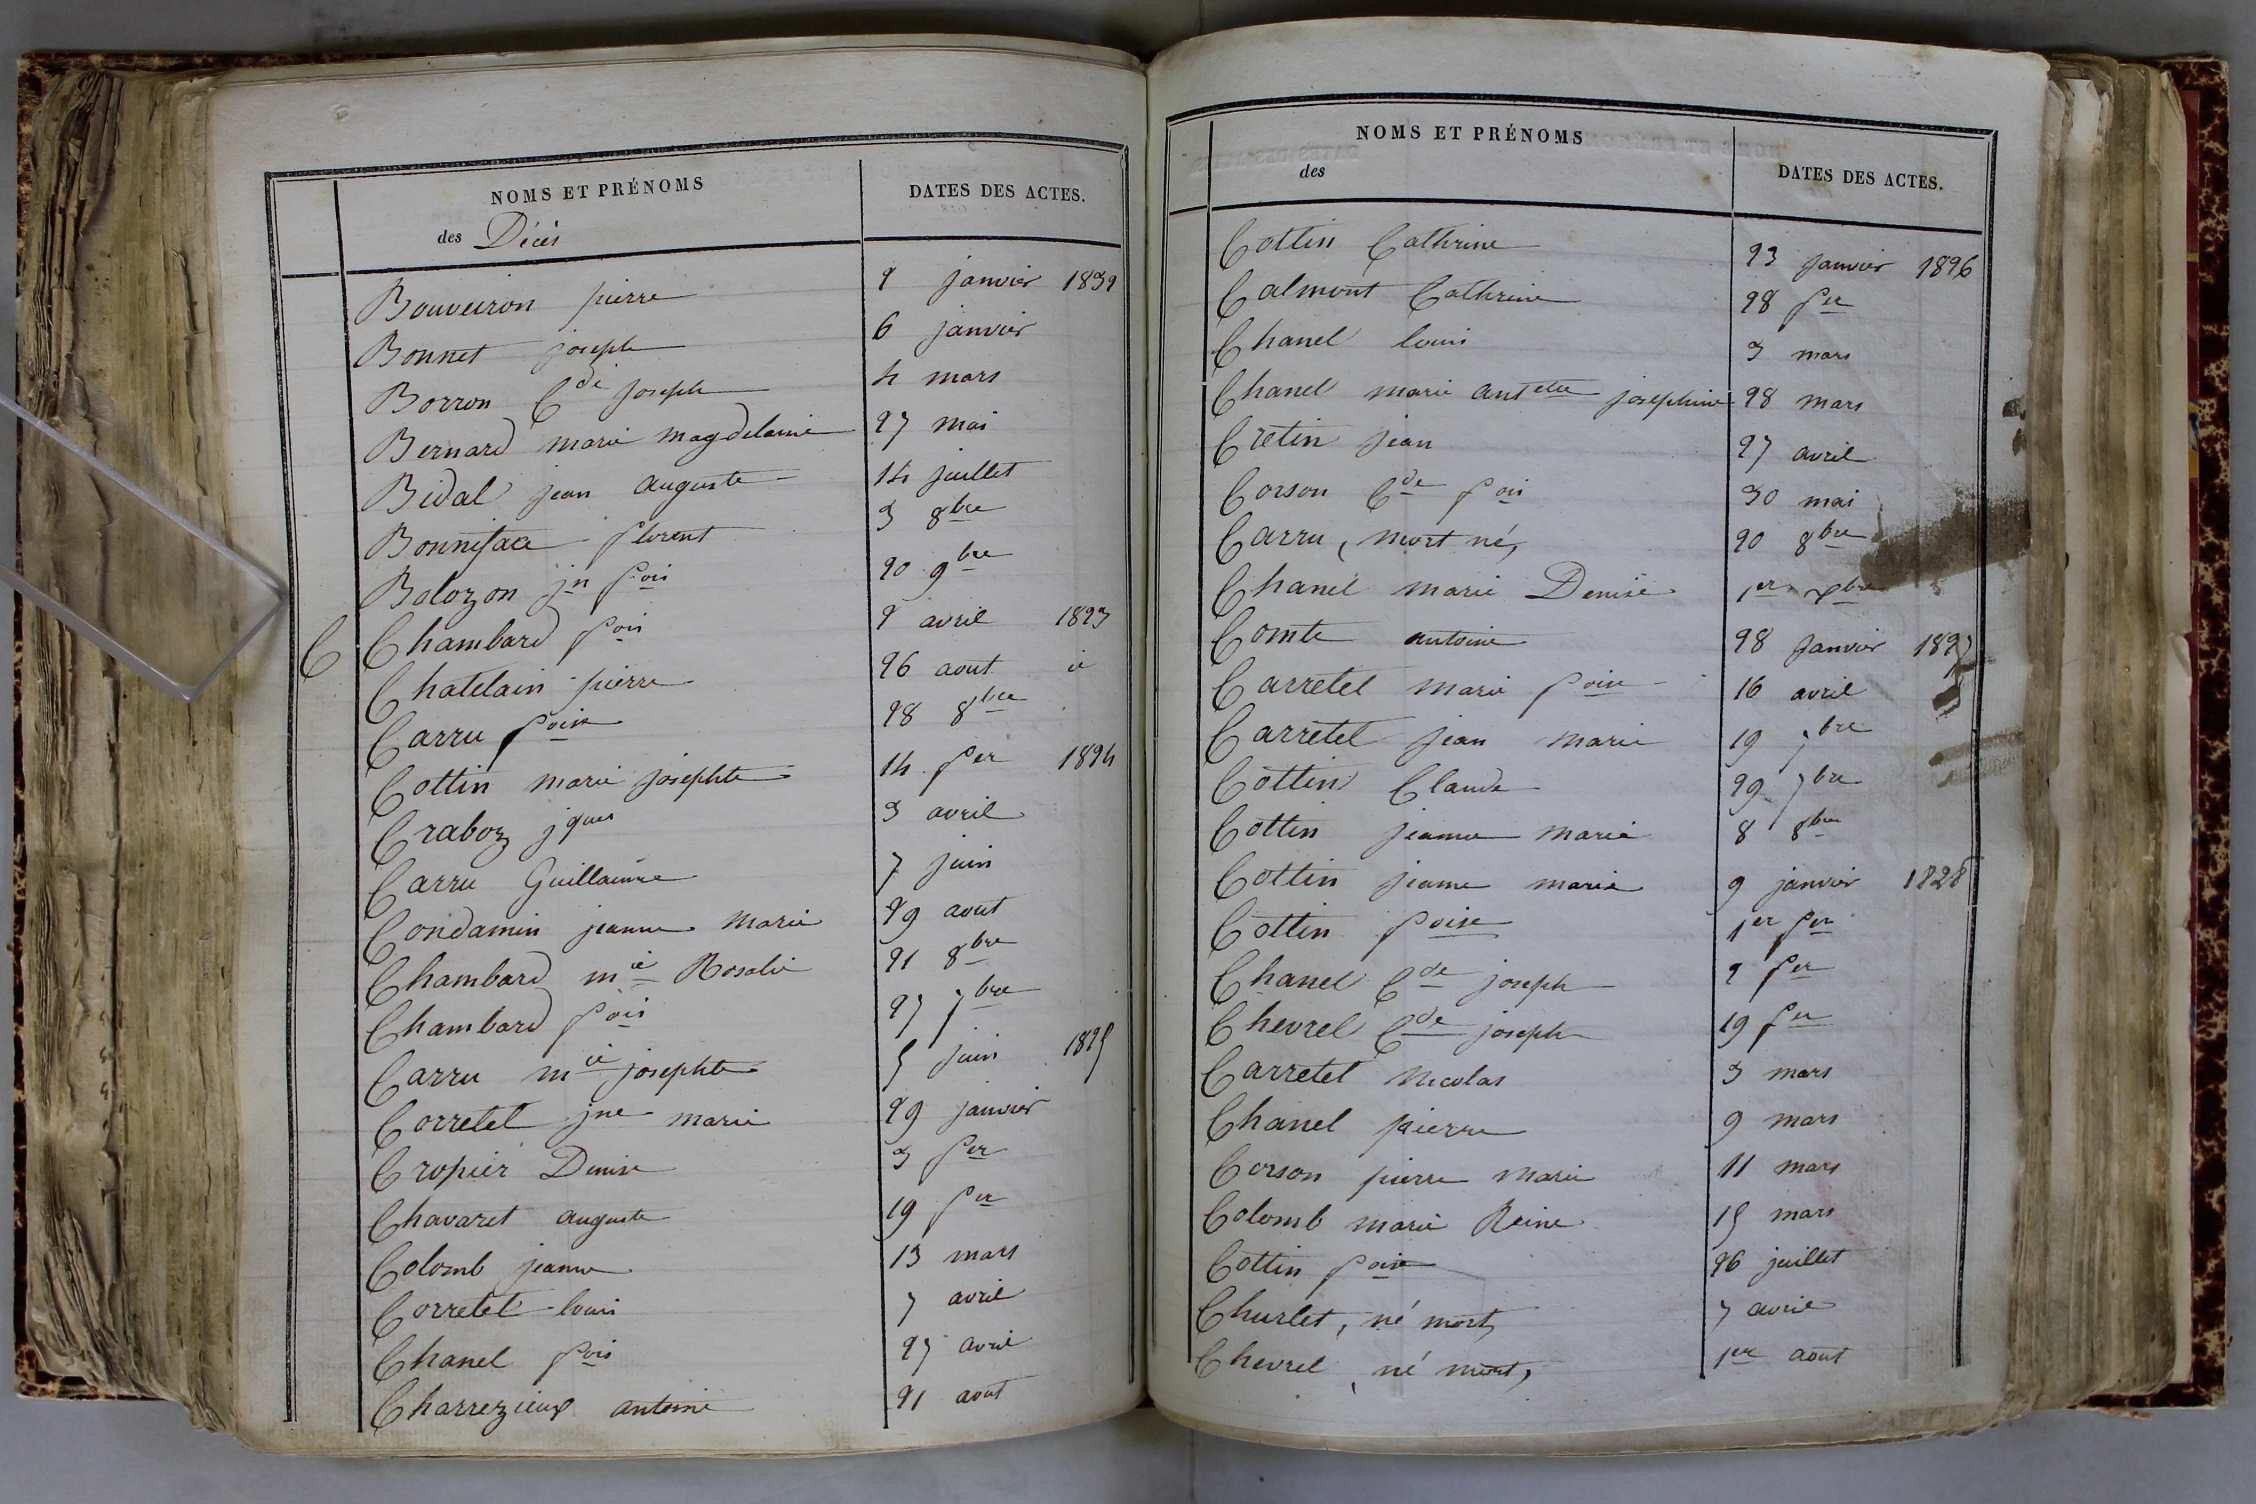 NOMS ET PRÉNOMS
des Décès
DATES DES ACTES.
Bouveiron pierre 2 janvier 1832
Bonnet joseph 6 janvier
Borron Cde joseph 4 mars
Bernard marie magdelaine 27 mai
Bidal jean auguste 14 juillet
Bonniface florent 3 8bre
Bolozon jn fois 20 9bre
C Chambard fois 2 avril 1823
Chatelain pierre 26 aout id
Carru foise 28 8bre
Cottin marie josephte 14 fer 1824
Craboz jques 3 avril
Carru Guillaume 7 juin
Condamin jeanne marie 29 aout
Chambard mie Rosalie 21 8bre
Chambard fois 27 7bre
Carru mie josephte 5 juin 1825
Corretel jne marie 29 janvier
Cropier Denise 3 fer
Chavaret auguste 19 fer
Colomb jeanne 13 mars
Corretel louis 7 avril
Chanel fois 27 avril
Charrezieux antoine 21 aout
NOMS ET PRÉNOMS
des
DATES DES ACTES.
Cottin Cathrine 23 janvier 1826
Calmont Cathrine 28 fer
Chanel louis 3 mars
Chanel marie antette josephine 28 mars
Cretin jean 27 avril
Corson Cde fois 30 mai
Carru, mort né, 20 8bre
Chanel marie Denise 1er xbre
Comte antoine 28 janvier 1827
Carretel marie foise 16 avril
Carretel jean marie 19 7bre
Cottin Claude 29 7bre
Cottin jeanne marie 8 8bre
Cottin jeanne marie 9 janvier 1828
Cottin foise 1er fer
Chanel Cde joseph 2 fer
Chevrel Cde joseph 19 fer
Carretel nicolas 3 mars
Chanel pierre 9 mars
Corson pierre marie 11 mars
Colomb marie Reine 15 mars
Cottin foise 26 juillet
Churlet, né mort, 7 avril
Chevrel, né mort, 1er aout